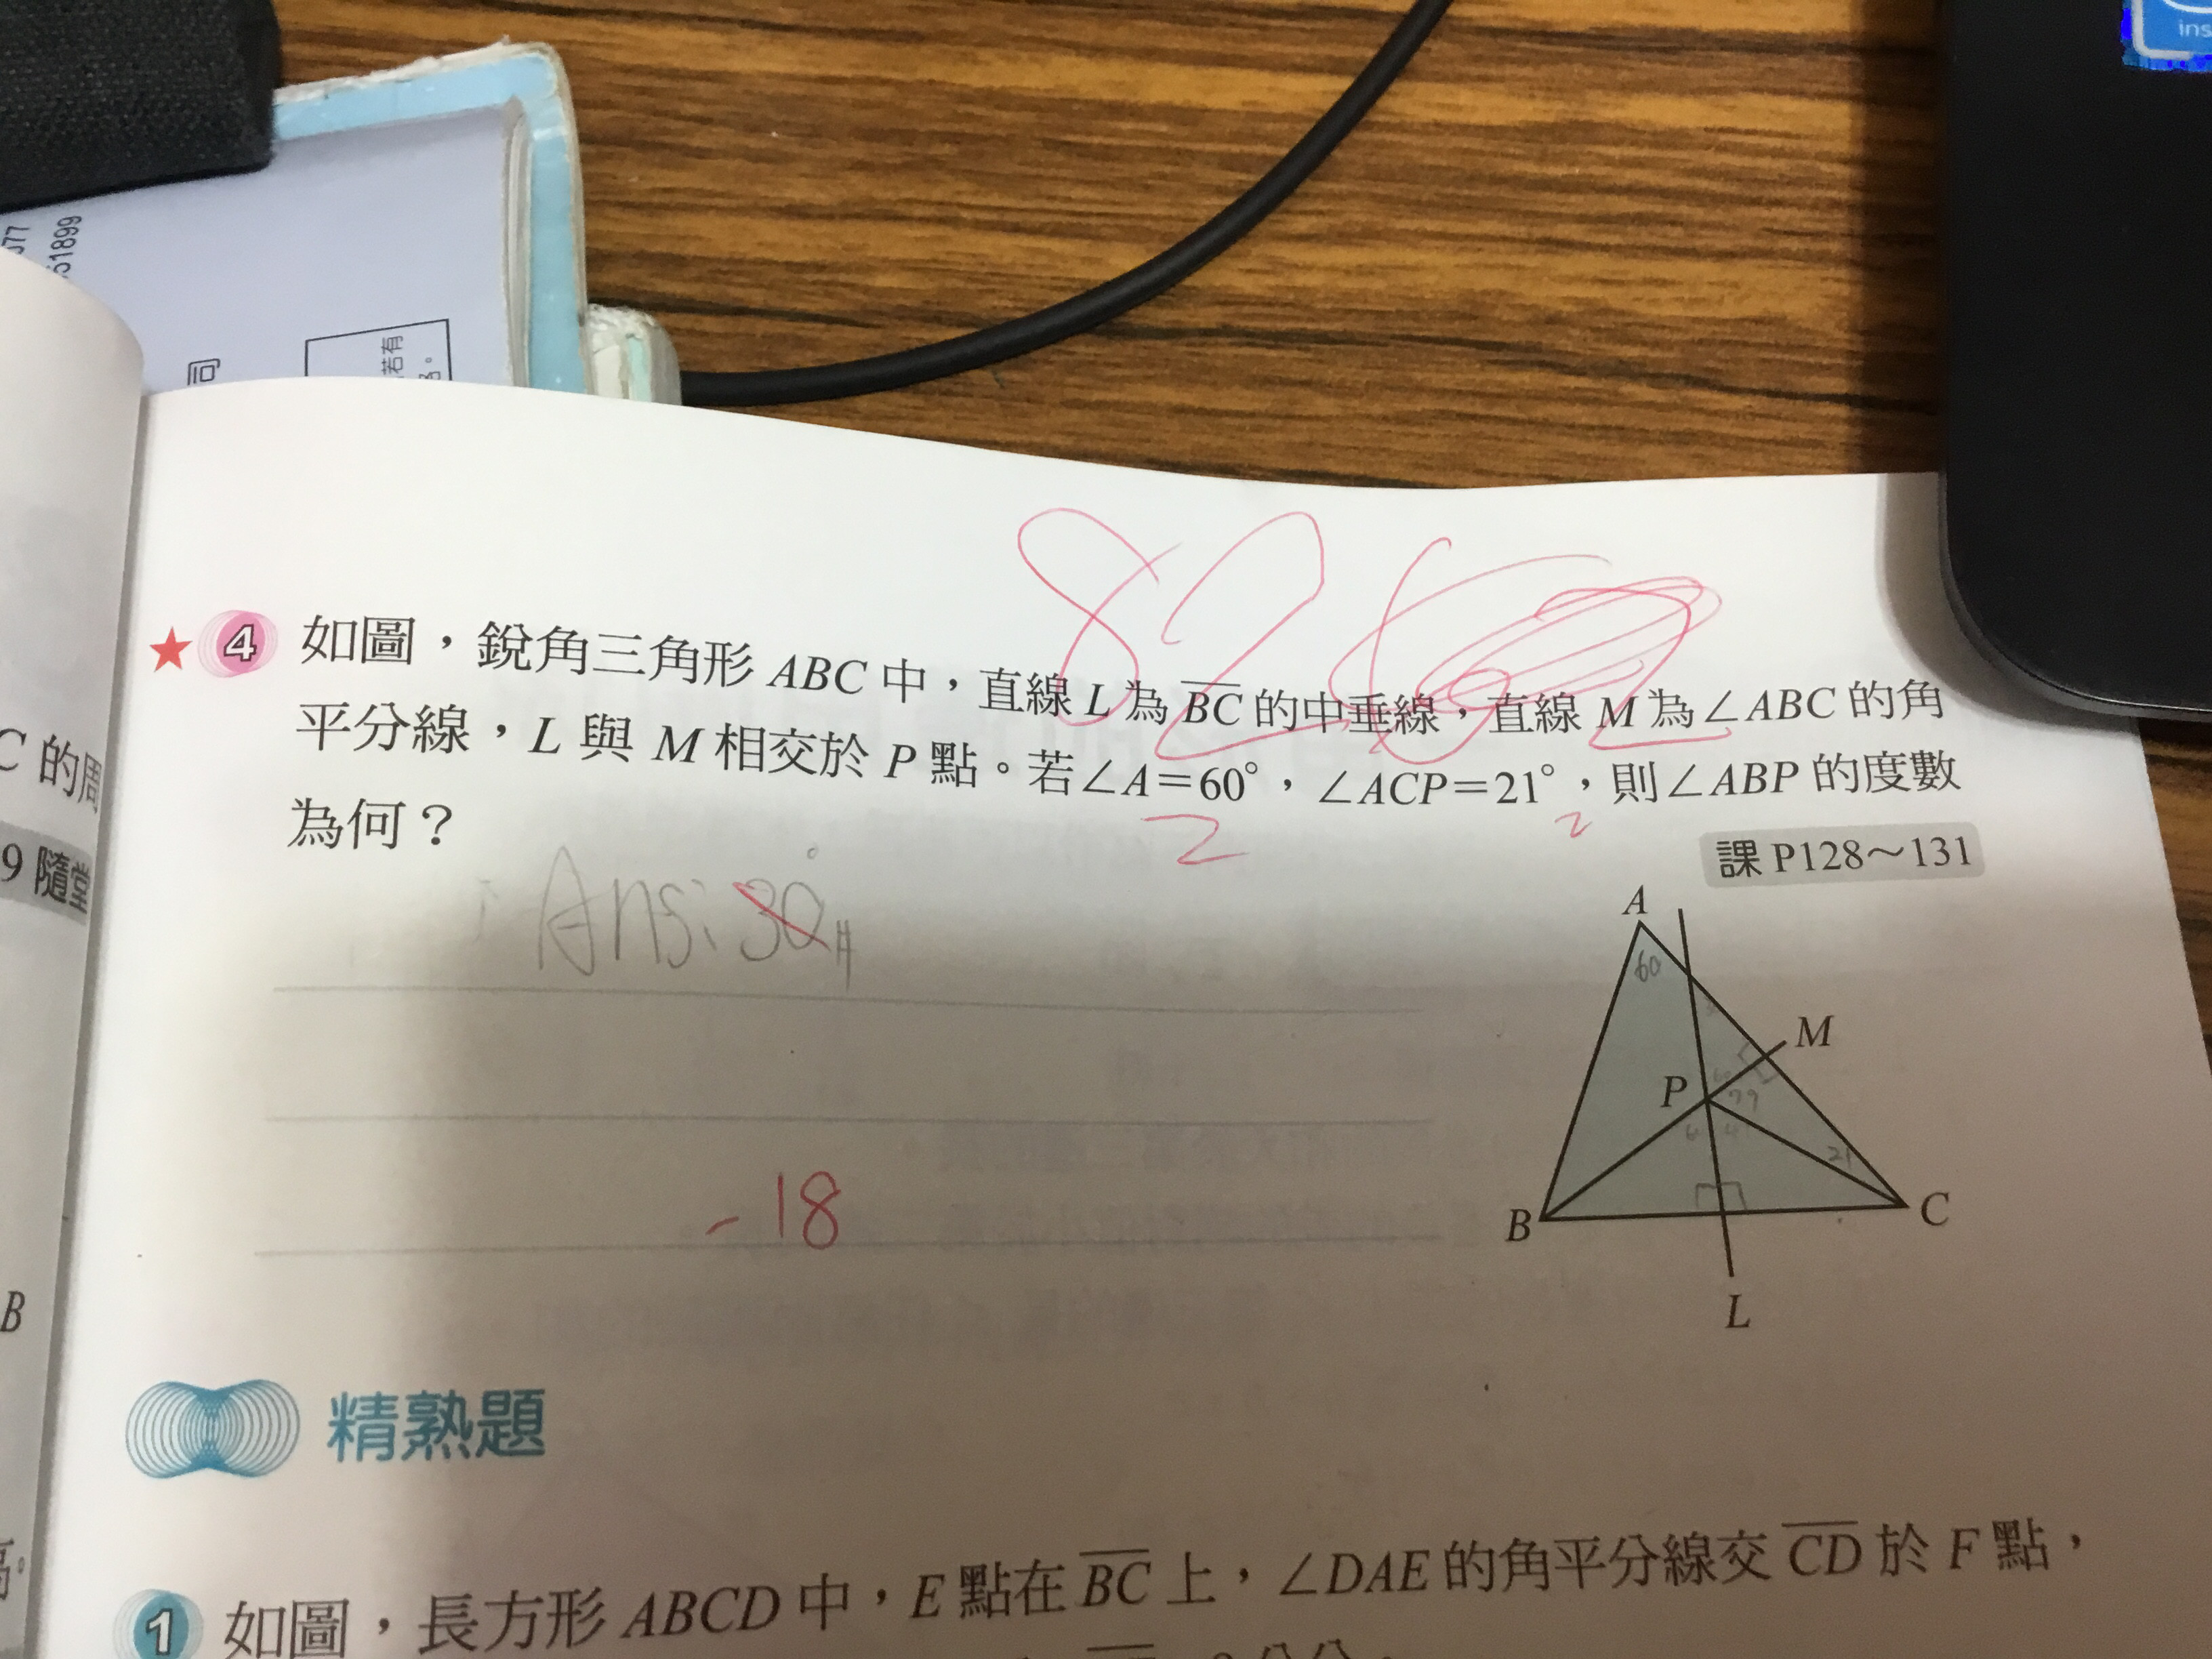 ins
77
51899
司
若有
82
4 如圖，銳角三角形 ABC 中，直線 L 為 BC 的中垂線，直線 M 為∠ABC 的角
平分線，L 與 M 相交於 P 點。若∠A＝60°，∠ACP＝21°，則∠ABP 的度數
為何？
課 P128～131
Ans: 30°
-18
A
60
M
P
79
21
B
C
L
C 的周
9 隨堂
B
精熟題
1 如圖，長方形 ABCD 中，E 點在 BC 上，∠DAE 的角平分線交 CD 於 F 點，